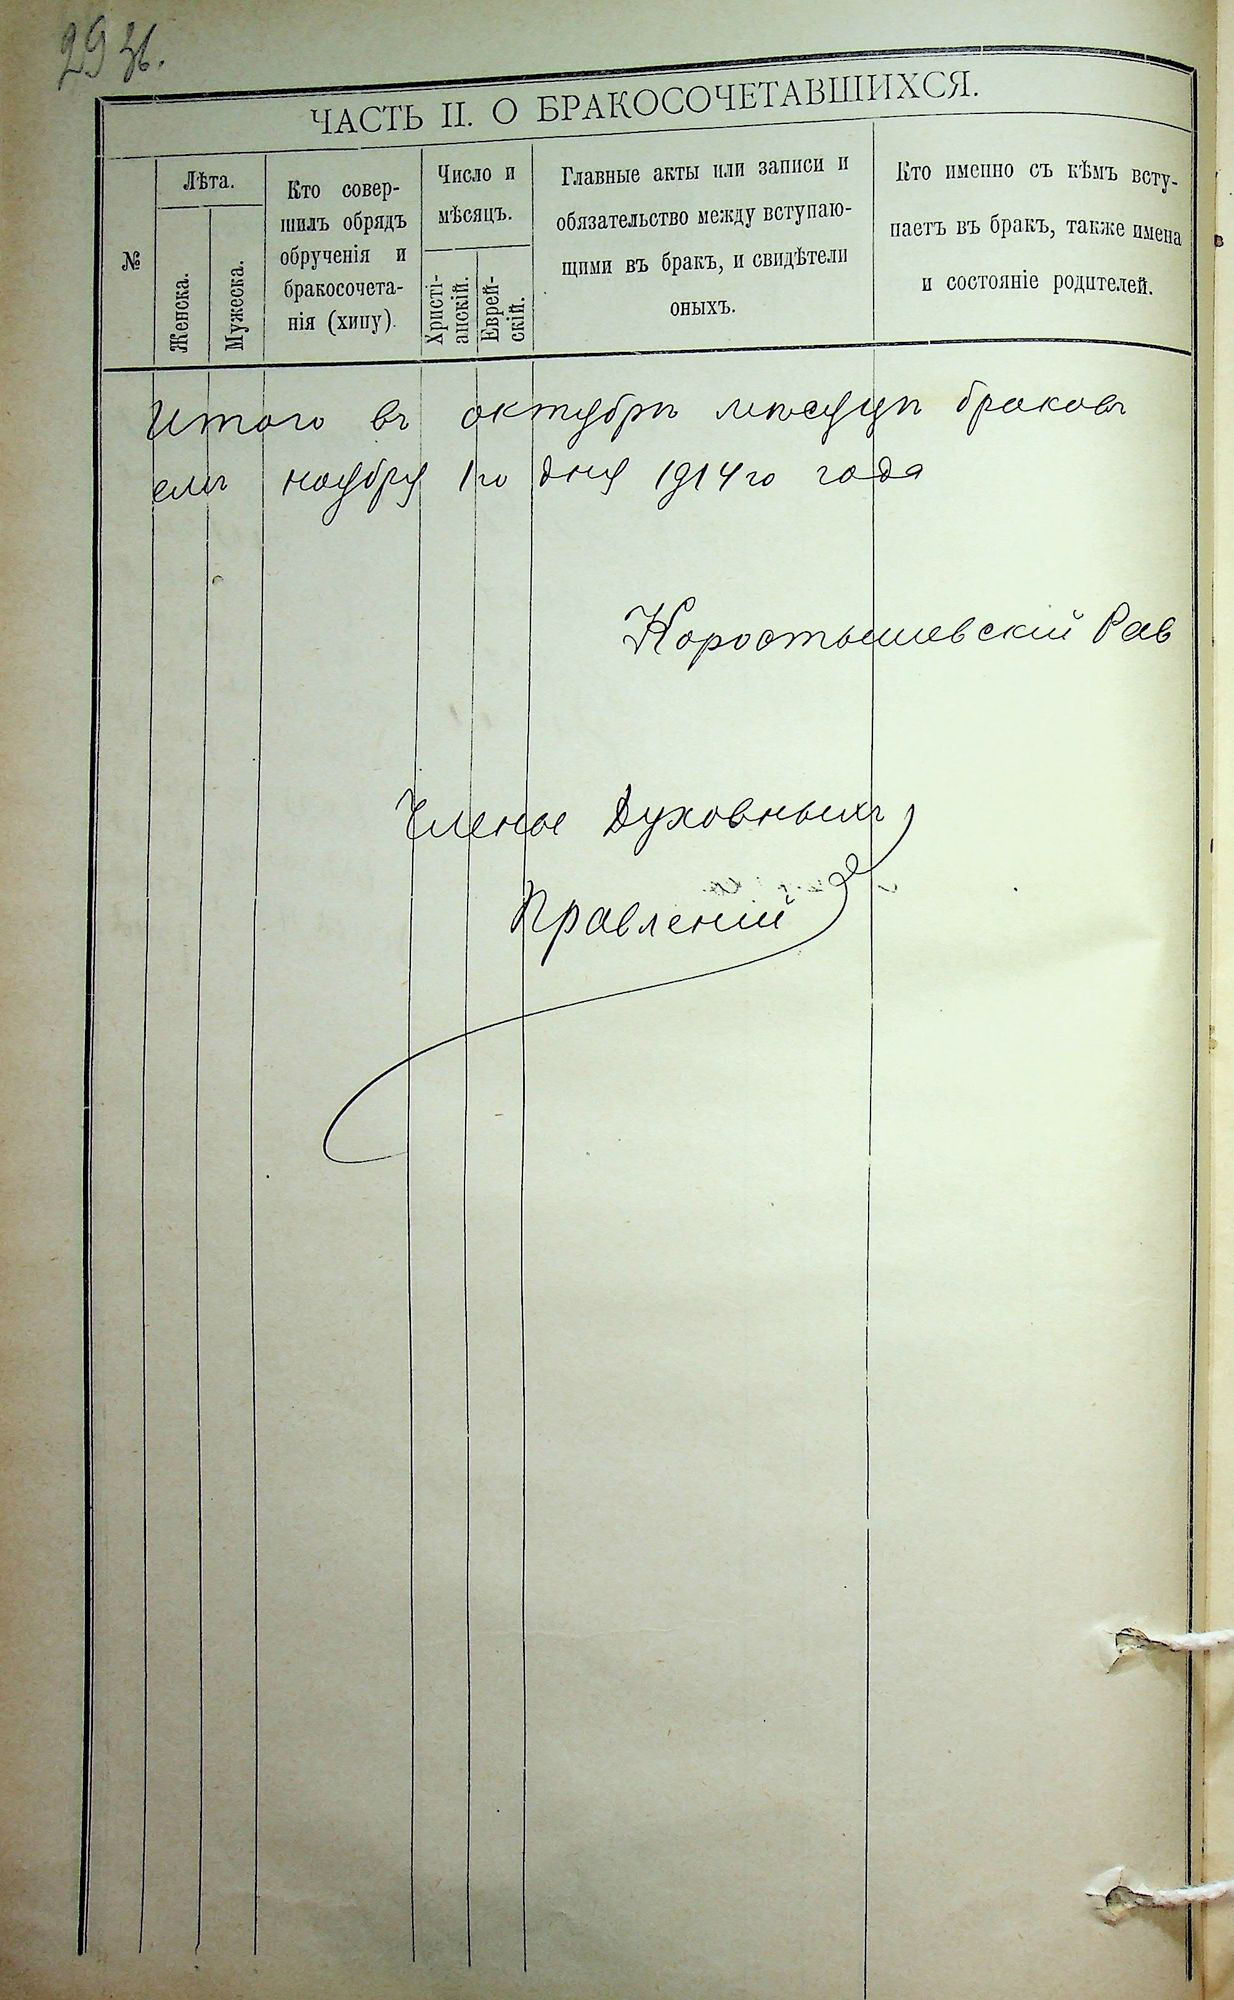 29 зв.
ЧАСТЬ II. О БРАКОСОЧЕТАВШИХСЯ.
№
Лѣта.
Женска.
Мужеска.
Кто совер-
шилъ обрядъ
обрученія и
бракосочета-
нія (хипу).
Число и
мѣсяцъ.
Христі-
анскій.
Еврей-
скій.
Главные акты или записи и
обязательство между вступаю-
щими въ бракъ, и свидѣтели
оныхъ.
Кто именно съ кѣмъ всту-
паетъ въ бракъ, также имена
и состояніе родителей.
Итого въ октябрѣ мѣсяцѣ браковъ
ноября 1го дня 1914го года
Коростышевскій Рав
Члены Духовныхъ
Правленій